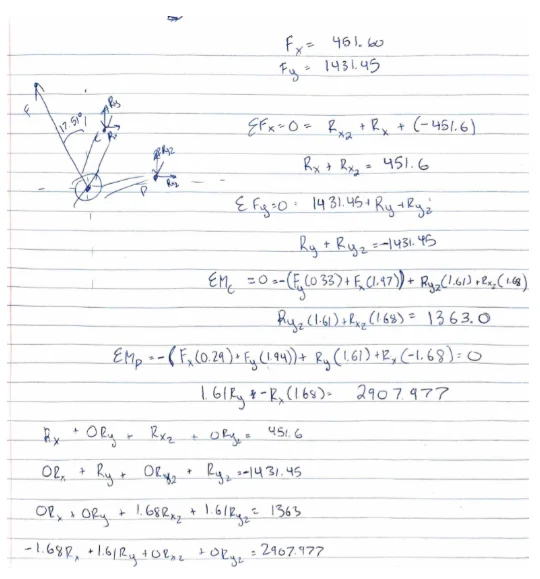 Fx = 451.60
Fy = 1431.45
F
17.51°
Ry
C
Rx
Ry2
Rx2
P
ΣFx=0 = Rx2 + Rx + (-451.6)
Rx + Rx2 = 451.6
ΣFy=0 = 1431.45 + Ry + Ry2
Ry + Ry2 = -1431.45
ΣMc = 0 = -(Fy(0.33) + Fx(1.97)) + Ry2(1.61) + Rx2(1.68)
Ry2(1.61) + Rx2(1.68) = 1363.0
ΣMp = -(Fx(0.29) + Fy(1.94)) + Ry(1.61) + Rx(-1.68) = 0
1.61Ry + -Rx(1.68) = 2907.977
Rx + 0Ry + Rx2 + 0Ry2 = 451.6
0Rx + Ry + 0Rx2 + Ry2 = -1431.45
0Rx + 0Ry + 1.68Rx2 + 1.61Ry2 = 1363
-1.68Rx + 1.61Ry + 0Rx2 + 0Ry2 = 2907.977